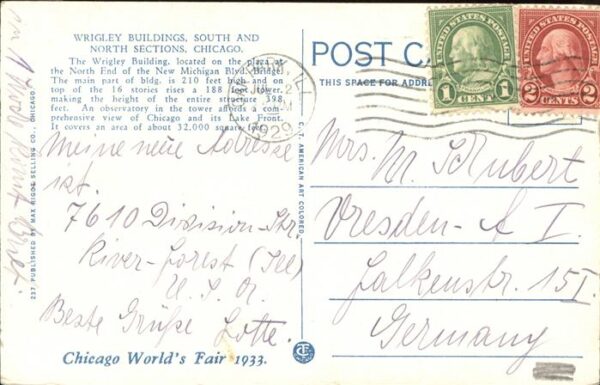 WRIGLEY BUILDINGS, SOUTH AND
NORTH SECTIONS, CHICAGO.
The Wrigley Building, located on the plaza at
the North End of the New Michigan Blvd. Bridge.
The main part of bldg. is 210 feet high and on
top of the 16 stories rises a 188 foot tower,
making the height of the entire structure 398
feet. An observatory in the tower affords a com-
prehensive view of Chicago and its Lake Front.
It covers an area of about 32,000 square
Meine neue Adresse
ist.
7610 Division-Str.
River-Forest (Ill)
U. S. A.
Beste Grüße Lotte.
Chicago World's Fair 1933.
237 PUBLISHED BY MAX RIGOT SELLING CO., CHICAGO
C. T. AMERICAN ART COLORED
POST
THIS SPACE FOR ADDRE
UNITED STATES POSTAGE
1 1
CENT
UNITED STATES POSTAGE
2 2
CENTS
1929
Mrs. M. Schubert
Dresden-A I.
Falkenstr. 15 I.
Germany